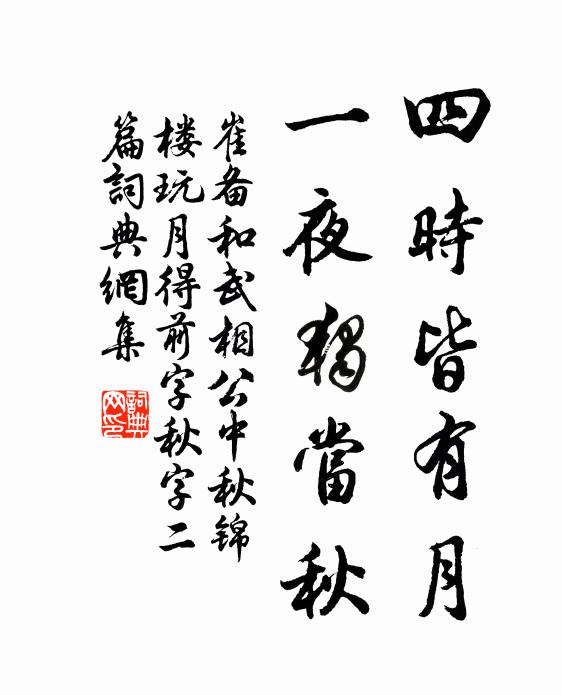 四時皆有月
一夜獨當秋
崔备和武相公中秋錦
楼玩月得前字秋字二
篇詞典網集
詞典
网印